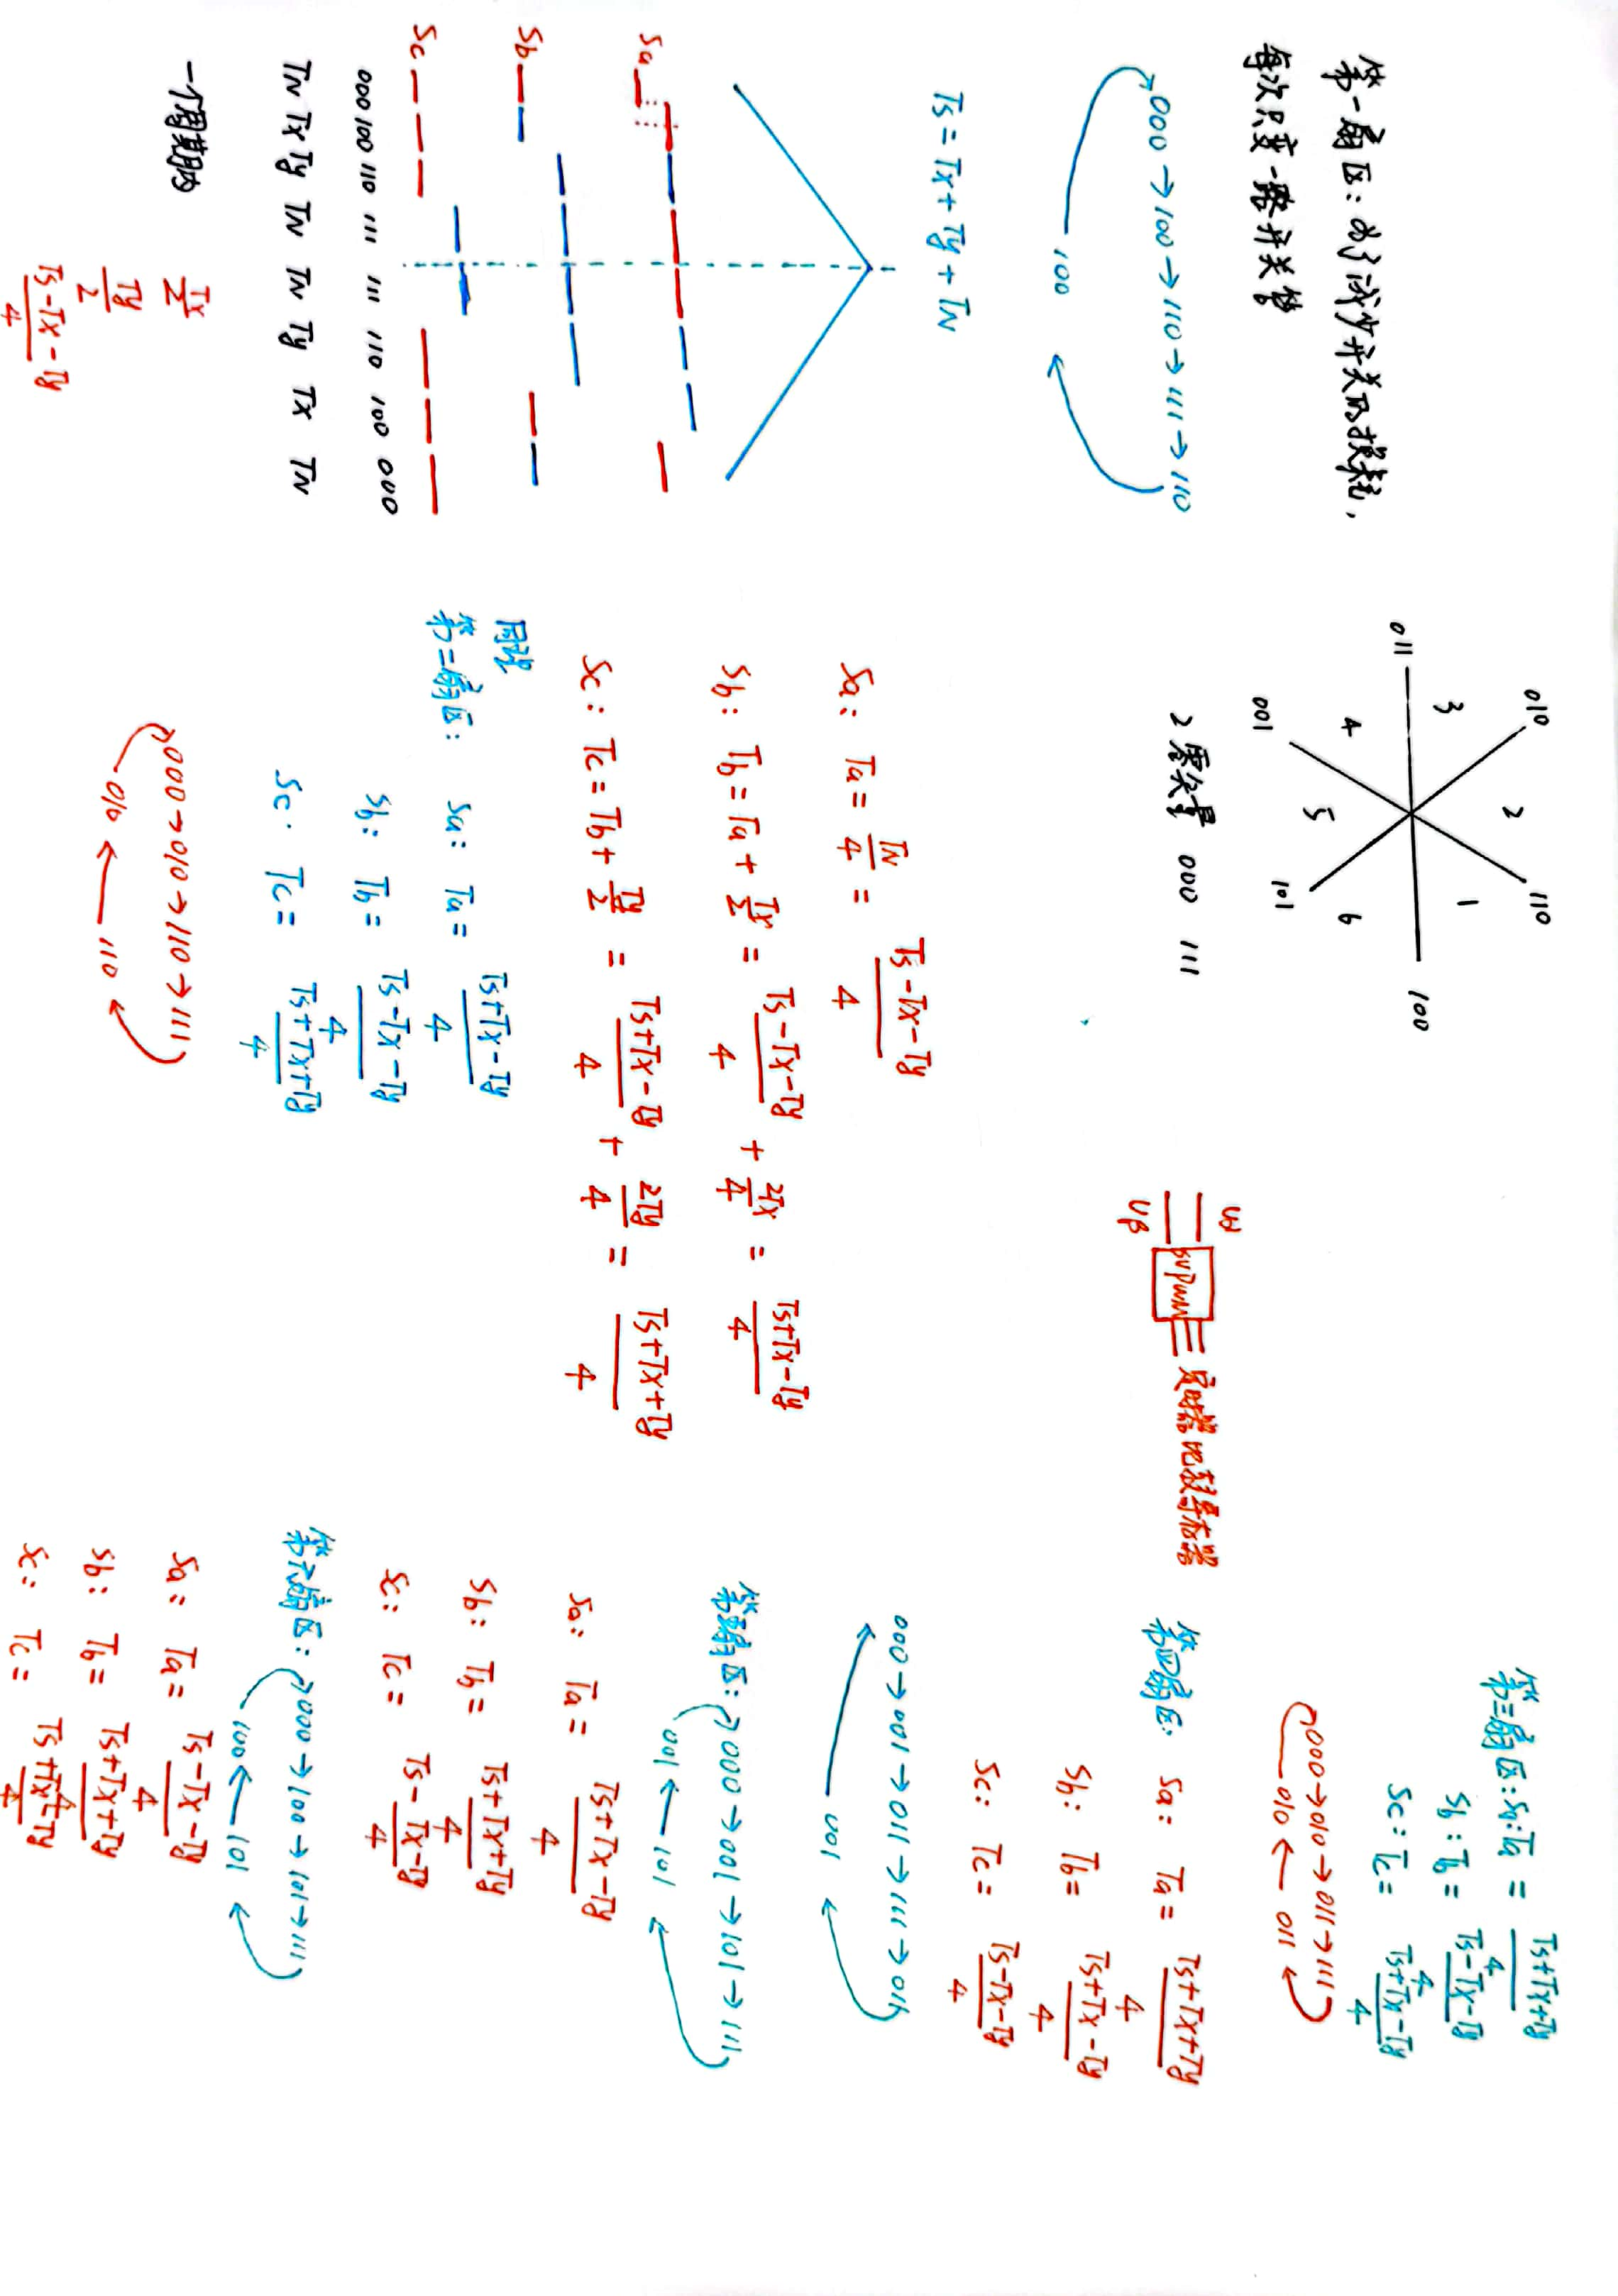 第一扇区：为了减少开关的损耗，
每次只变一路开关管
000→100→110→111→110
100
Ts = Tx + Ty + TN
Sa
Sb
Sc
000 100 110 111 111 110 100 000
TN Tx Ty TN TN Ty Tx TN
一个周期内
Tx/2
Ty/2
Ts-Tx-Ty/4
010
110
011
100
001
101
3
2
1
4
5
6
2零矢量 000 111
Sa: Ta = TN/4 = Ts-Tx-Ty/4
Sb: Tb = Ta + Tx/2 = Ts-Tx-Ty/4 + 2Tx/4 = Ts+Tx-Ty/4
Sc: Tc = Tb + Ty/2 = Ts+Tx-Ty/4 + 2Ty/4 = Ts+Tx+Ty/4
同理
第二扇区:
Sa: Ta = Ts+Tx-Ty/4
Sb: Tb = Ts-Tx-Ty/4
Sc. Tc = Ts+Tx+Ty/4
000→010→110→111
010 ← 110
Uα
Uβ
SVPWM
定时器比较寄存器
第三扇区: Sa: Ta = Ts+Tx+Ty/4
Sb: Tb = Ts-Tx-Ty/4
Sc: Tc = Ts+Tx-Ty/4
000→010→011→111
010 ← 011
第四扇区:
Sa: Ta = Ts+Tx+Ty/4
Sb: Tb = Ts+Tx-Ty/4
Sc: Tc = Ts-Tx-Ty/4
000→001→011→111→011
001
第五扇区: 000→001→101→111
001 ← 101
Sa: Ta = Ts+Tx-Ty/4
Sb: Tb = Ts+Tx+Ty/4
Sc: Tc = Ts-Tx-Ty/4
第六扇区: 000→100→101→111
100 ← 101
Sa: Ta = Ts-Tx-Ty/4
Sb: Tb = Ts+Tx+Ty/4
Sc: Tc = Ts+Tx-Ty/4